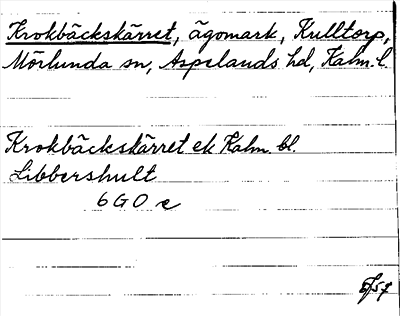 Krokbäckskärret, ägomark, Kulltorp,
Mörlunda sn, Aspelands hd, Kalm. l.
Krokbäckskärret ek Kalm. bl.
Libbershult
6G0e
5/57